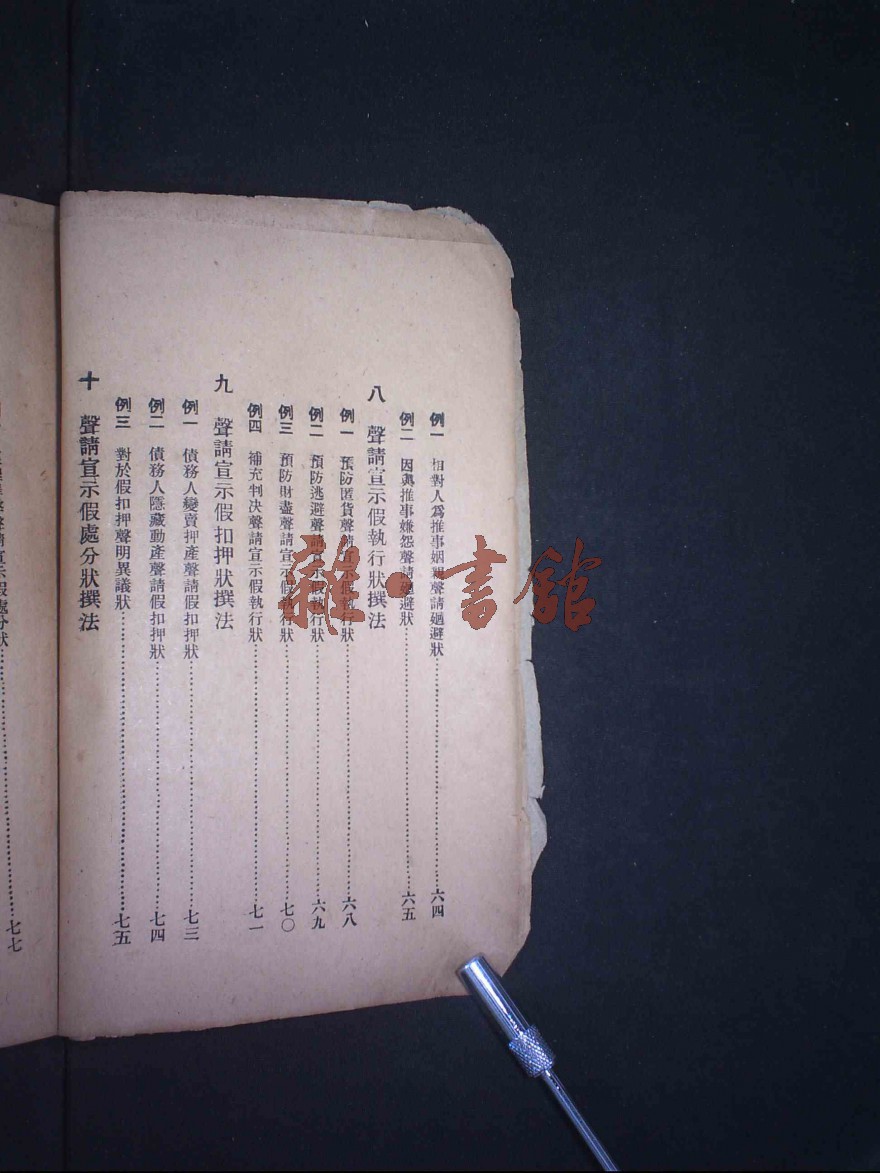 例一　相對人爲推事姻親聲請廻避狀……六四
例二　因與推事嫌怨聲請廻避狀……六五
八　聲請宣示假執行狀撰法
例一　預防匿貨聲請宣示假執行狀……六八
例二　預防逃避聲請宣示假執行狀……六九
例三　預防財盡聲請宣示假執行狀……七〇
例四　補充判决聲請宣示假執行狀……七一
九　聲請宣示假扣押狀撰法
例一　債務人變賣押產聲請假扣押狀……七三
例二　債務人隱藏動產聲請假扣押狀……七四
例三　對於假扣押聲明異議狀……七五
十　聲請宣示假處分狀撰法
聲請宣示假處分狀……七七
雜·書館